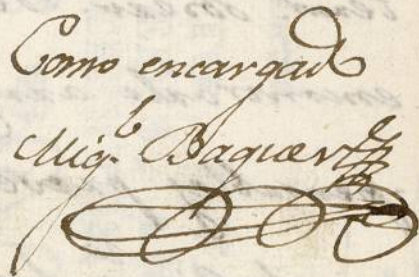 Como encargado
Mig.l Baquer